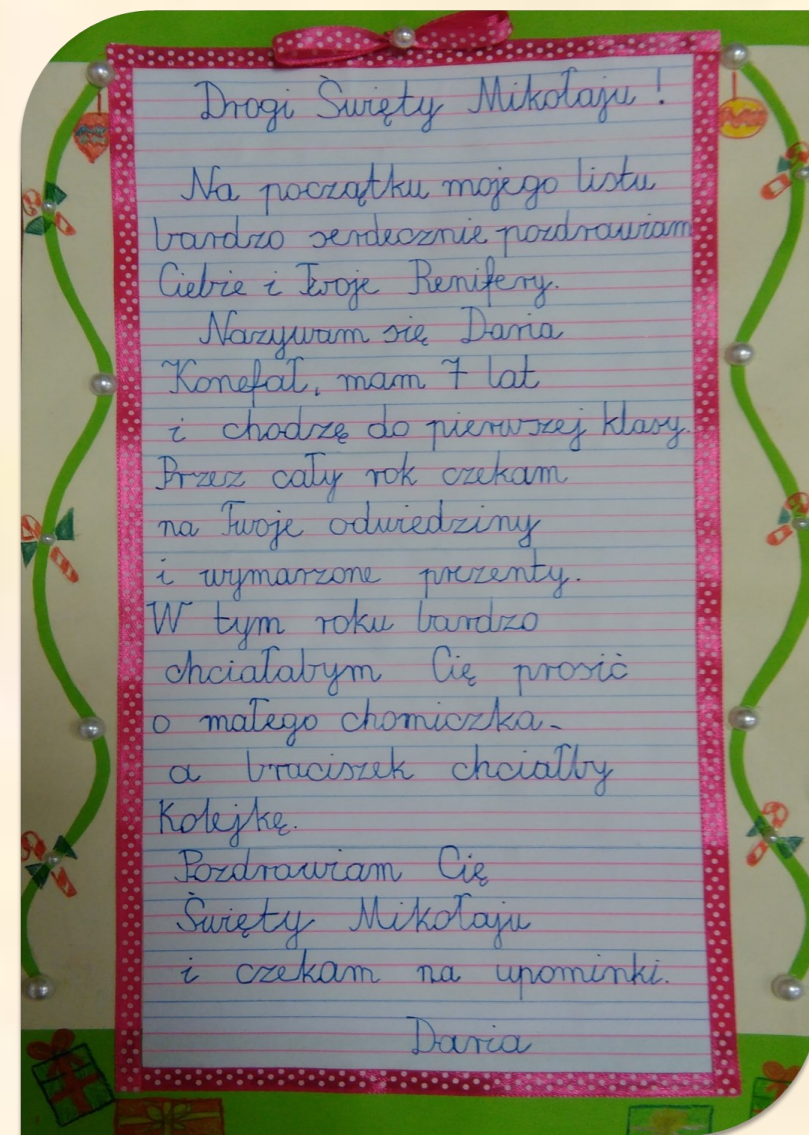 Drogi Święty Mikołaju !
Na początku mojego listu
bardzo serdecznie pozdrawiam
Ciebie i Twoje Renifery.
Nazywam się Daria
Konefał, mam 7 lat
i chodzę do pierwszej klasy.
Przez cały rok czekam
na Twoje odwiedziny
i wymarzone prezenty.
W tym roku bardzo
chciałabym Cię prosić
o małego chomiczka-
a braciszek chciałby
Kolejkę.
Pozdrawiam Cię
Święty Mikołaju
i czekam na upominki.
Daria